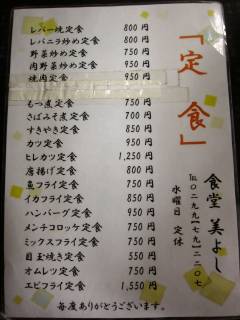 「定食」
レバー焼定食 800円
レバニラ炒め定食 800円
野菜炒め定食 750円
肉野菜炒め定食 950円
焼肉定食 950円
もつ煮定食 750円
さばみそ煮定食 700円
すきやき定食 850円
カツ定食 950円
ヒレカツ定食 1,250円
唐揚げ定食 800円
魚フライ定食 750円
イカフライ定食 850円
ハンバーグ定食 950円
メンチコロッケ定食 750円
ミックスフライ定食 750円
目玉焼き定食 550円
オムレツ定食 750円
エビフライ定食 1,550円
毎度ありがとうございます。
食堂 美よし
℡0299(79)2207
水曜日 定休